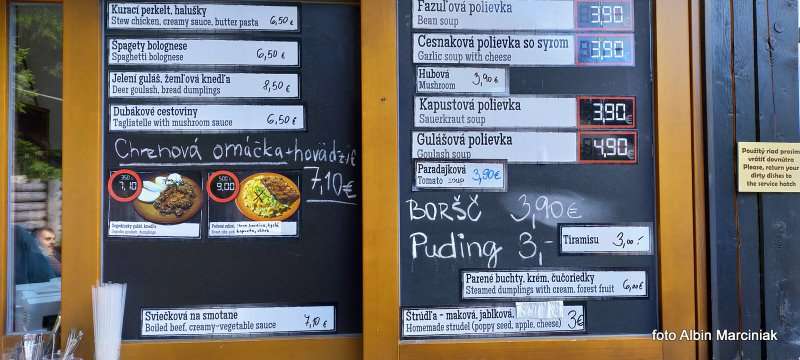 Kurací perkelt, halušky
Stew chicken, creamy sauce, butter pasta 6,50€
Špagety bolognese
Spaghetti bolognese 6,50€
Jelení guláš, žemľová knedľa
Deer goulash, bread dumplings 8,50€
Dubákové cestoviny
Tagliatelle with mushroom sauce 6,50€
Chrenová omáčka+hovädzie
7,10€
350 g
7,10
500
9,00
Segedínsky guláš knedľa
Sviečková na smotane
Boiled beef, creamy-vegetable sauce 7,10€
Fazuľová polievka
Bean soup 3,90
Cesnaková polievka so syrom
Garlic soup with cheese 3,90
Hubová
Mushroom 3,90€
Kapustová polievka
Sauerkraut soup 3,90
Gulášová polievka
Goulash soup 4,90
Paradajková
Tomato soup 3,90€
BORŠČ 3,90€
Puding 3,-
Tiramisu 3,00.-
Parené buchty, krém, čučoriedky
Steamed dumplings with cream, forest fruit 6,00€
Štrúdľa - maková, jablková,
Homemade strudel (poppy seed, apple, cheese) 3€
Použitý riad prosím
vrátiť dovnútra
Please, return your
dirty dishes to
the service hatch
foto Albin Marciniak